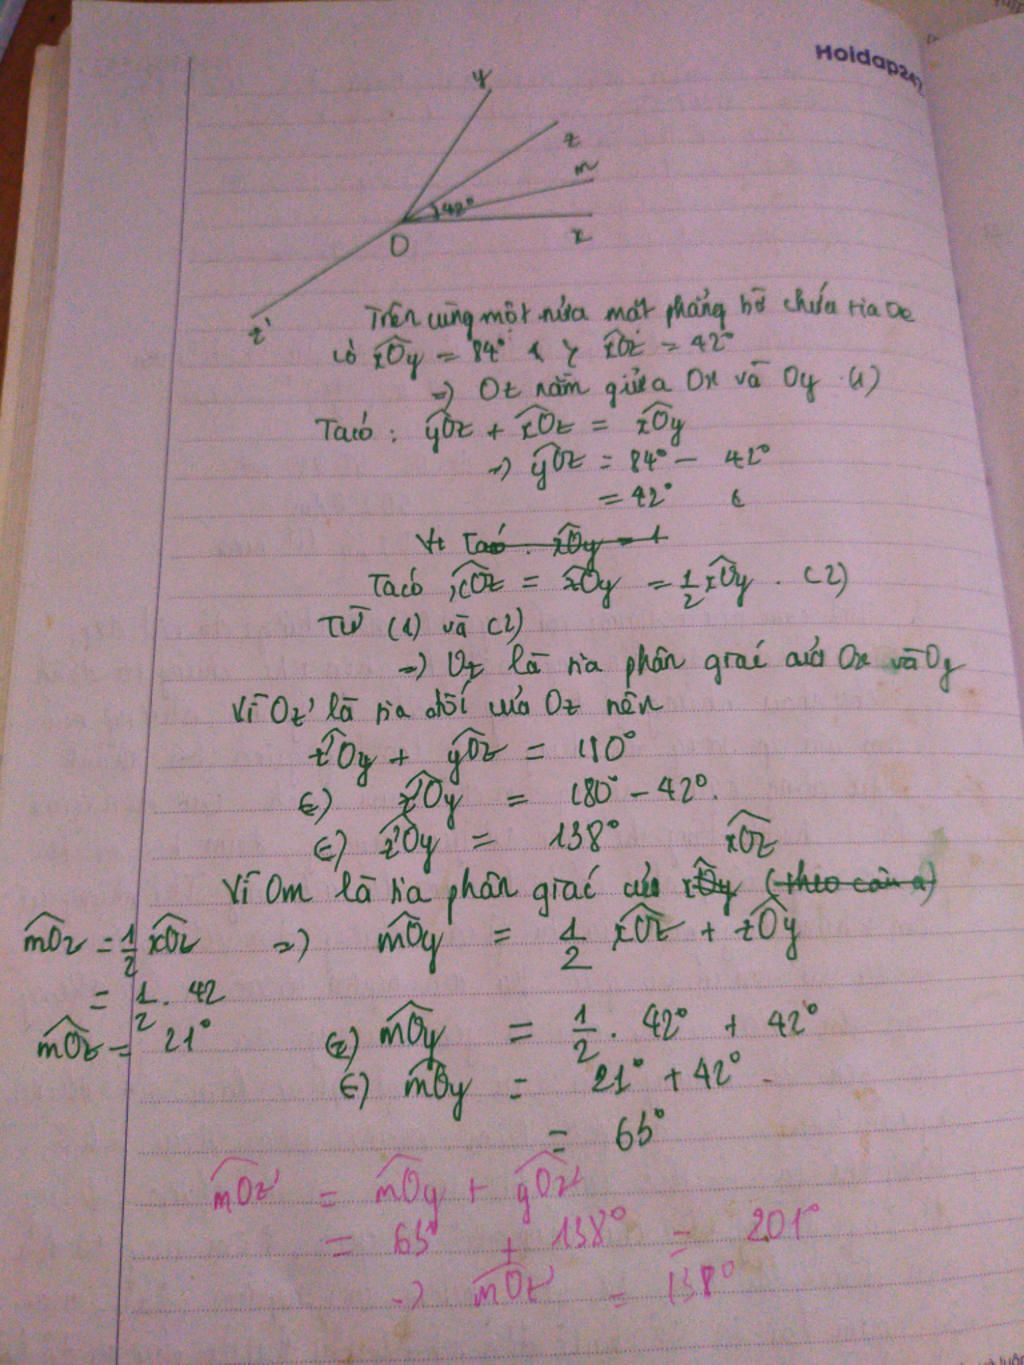 Hoidap247
y
z
m
42°
O
x
z'
Trên cùng một nửa mặt phẳng bờ chứa tia Ox
có xOy = 84° xOz = 42°
=) Oz nằm giữa Ox và Oy (1)
Ta có : yOz + xOz = xOy
=) yOz = 84° - 42°
= 42°
Ta có xOy =
Ta có xOz = zOy = 1/2 xOy . (2)
Từ (1) và (2)
=) Oz là tia phân giác của Ox và Oy
Vì Oz' là tia đối của Oz nên
z'Oy + yOz = 180°
z'Oy = 180° - 42°.
z'Oy = 138° xOz
Vì Om là tia phân giác của xOy (theo câu a)
mOz = 1/2 xOz =) mOy = 1/2 xOz + zOy
= 1/2 . 42
mOz = 21° mOy = 1/2 . 42° + 42°
mOy = 21° + 42°
= 63°
mOz' = mOy + yOz'
= 63° + 138° = 201°
mOz' = 138°